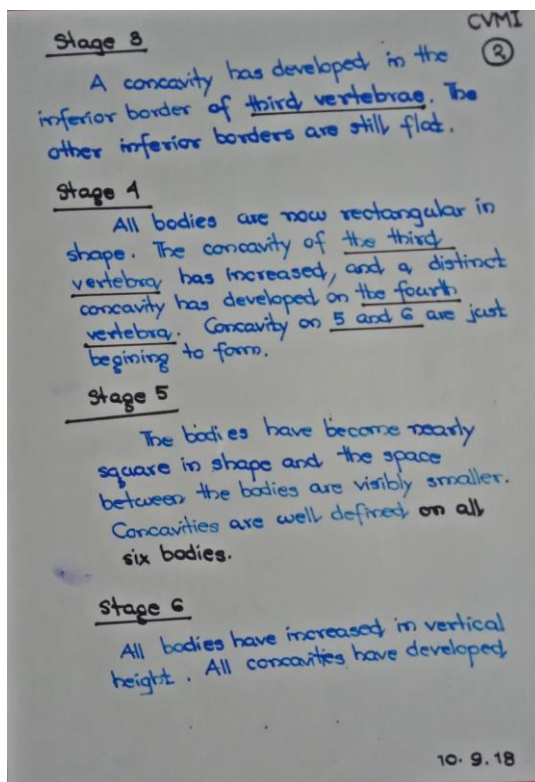 CVMI
2
Stage 3
A concavity has developed in the
inferior border of third vertebrae. The
other inferior borders are still flat.
Stage 4
All bodies are now rectangular in
shape. The concavity of the third
vertebra has increased, and a distinct
concavity has developed on the fourth
vertebra. Concavity on 5 and 6 are just
begining to form.
Stage 5
The bodies have become nearly
square in shape and the space
between the bodies are visibly smaller.
Concavities are well defined on all
six bodies.
Stage 6
All bodies have increased in vertical
height. All concavities have developed
10.9.18